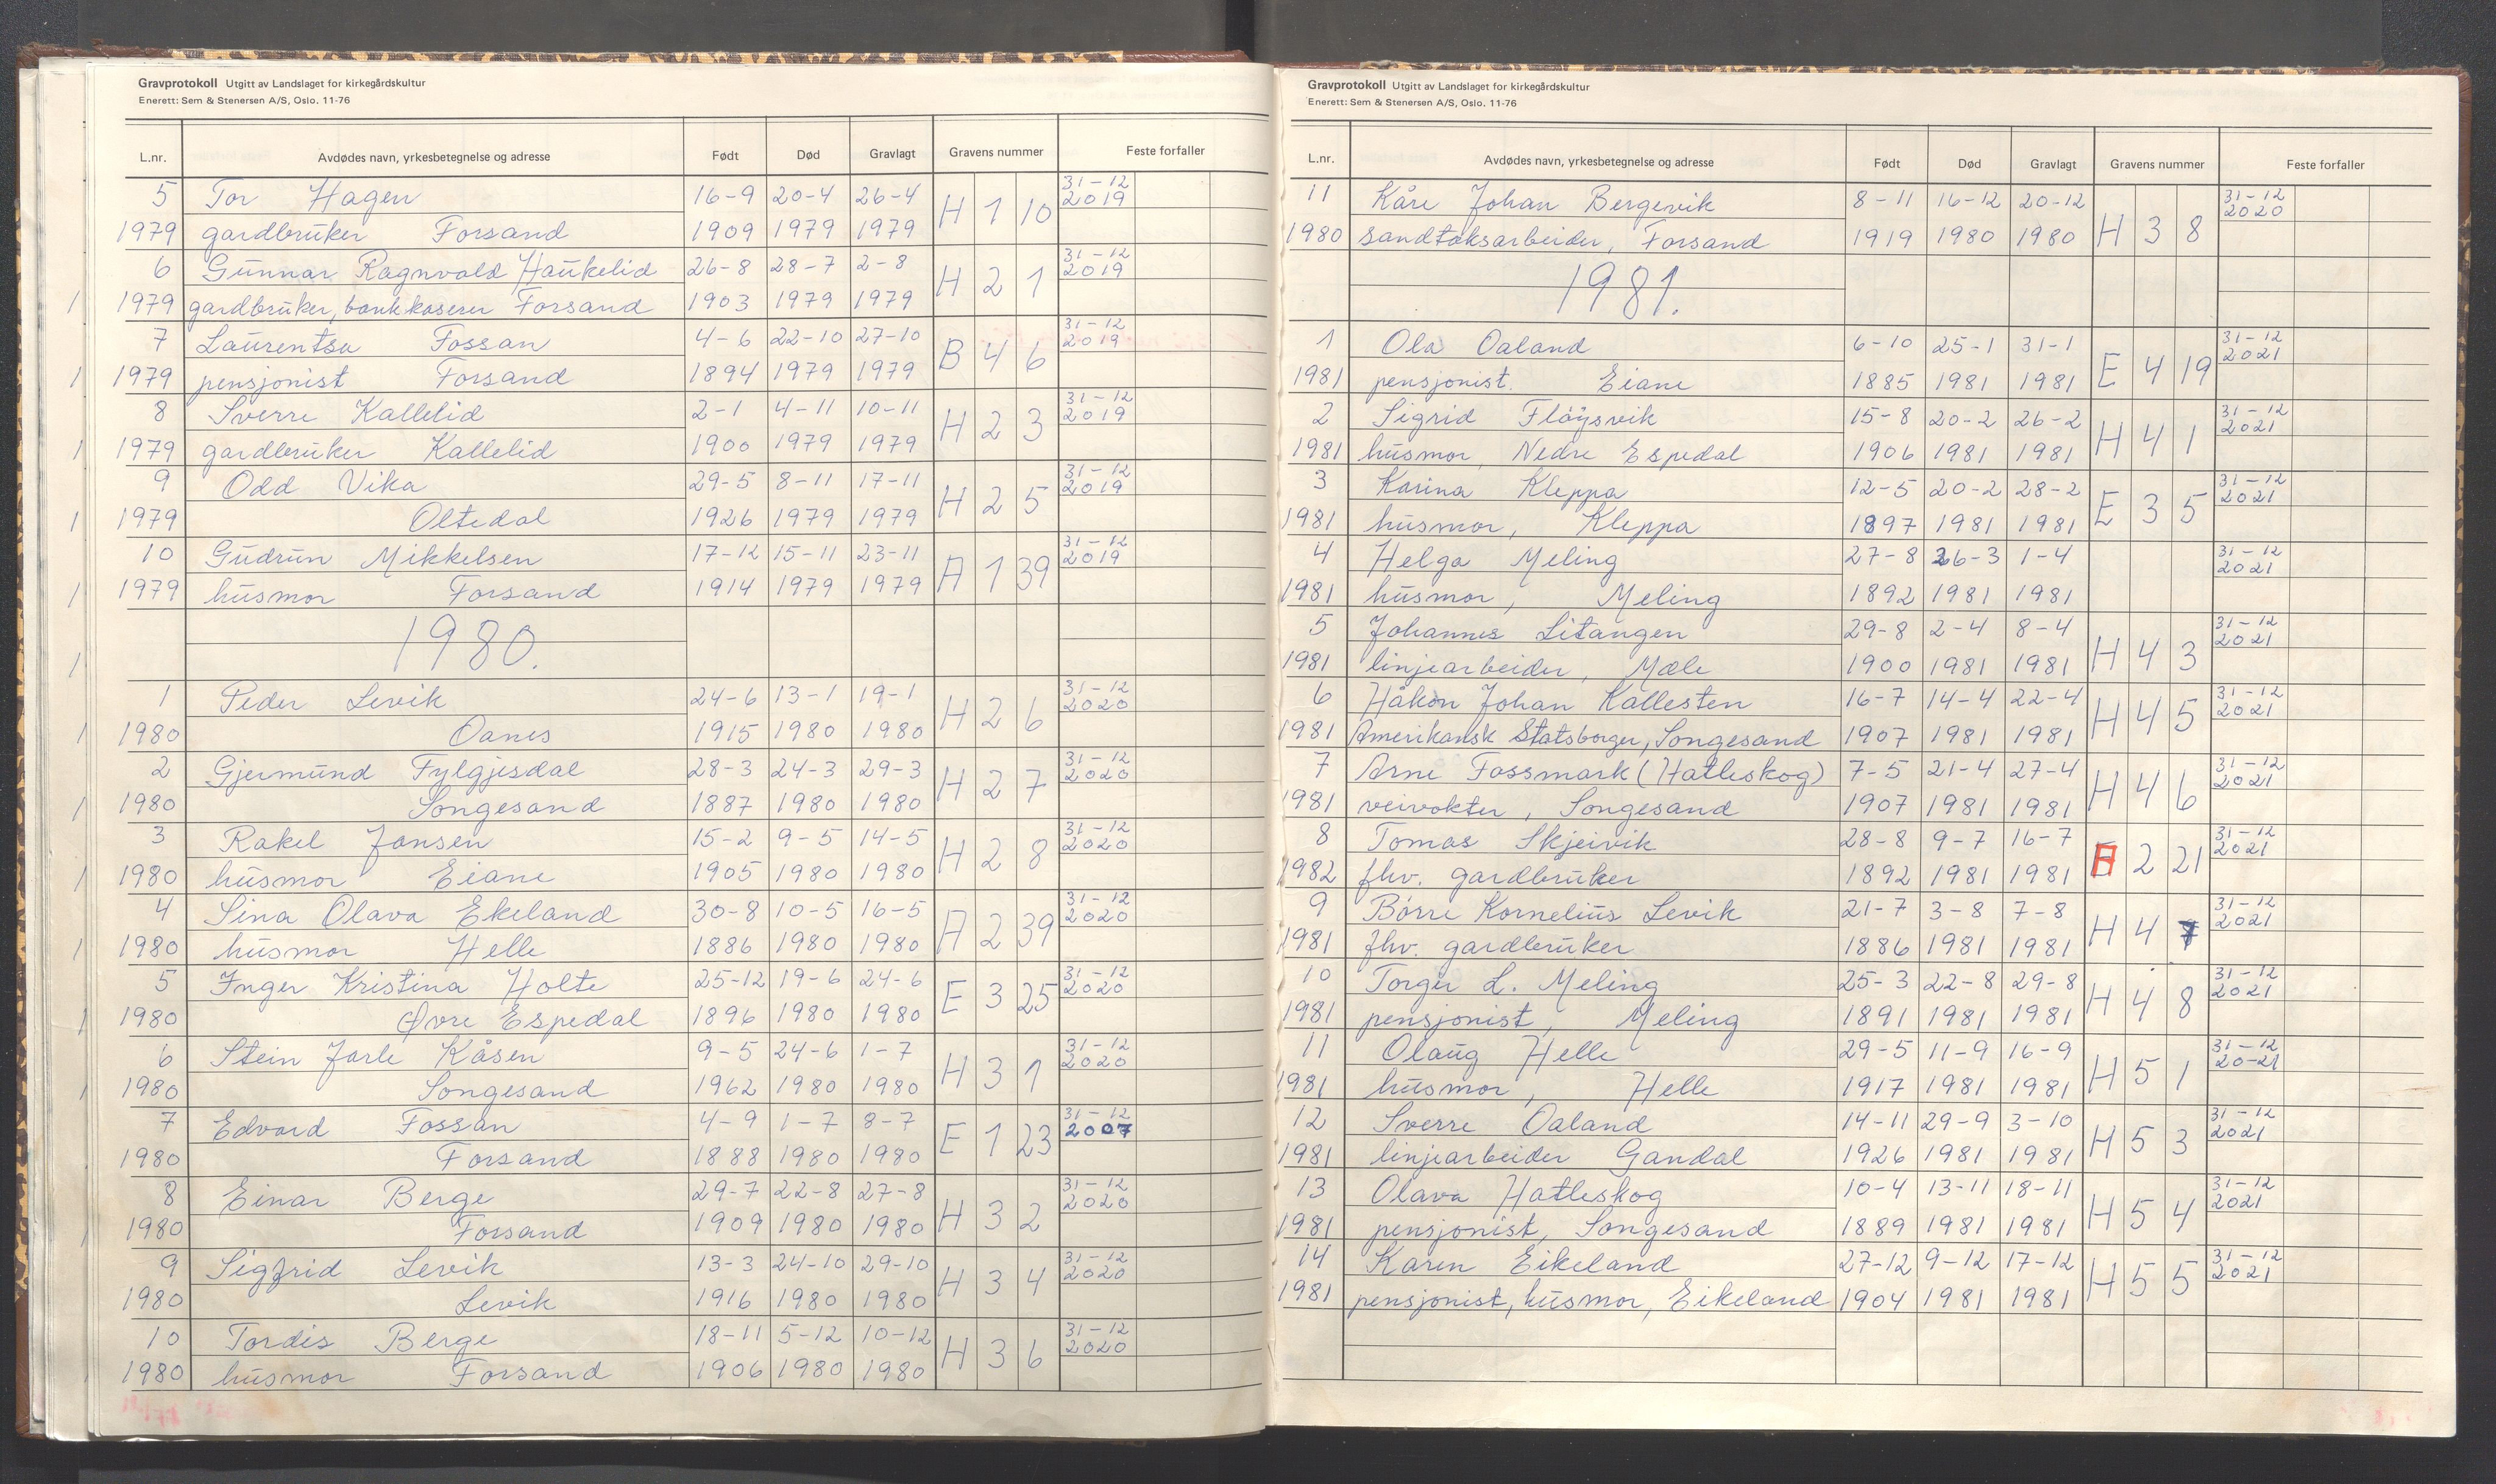 Gravprotokoll Utgitt av Landslaget for kirkegårdskultur
Enerett: Sem & Stenersen A/S, Oslo. 11-76
L.nr. Avdødes navn, yrkesbetegnelse og adresse Født Død Gravlagt Gravens nummer Feste forfaller
5 Tor Hagen 16-9 20-4 26-4 H 1 10 31-12 2019
1979 gardbruker Forsand 1909 1979 1979
6 Gunnar Ragnvald Haukelid 26-8 28-7 2-8 H 2 1 31-12 2019
1979 gardbruker, bankkaserer Forsand 1903 1979 1979
7 Laurentsa Fossan 4-6 22-10 27-10 B 4 6 31-12 2019
1979 pensjonist Forsand 1894 1979 1979
8 Sverre Kallelid 2-1 4-11 10-11 H 2 3 31-12 2019
1979 gardbruker Kallelid 1900 1979 1979
9 Odd Vika 29-5 8-11 17-11 H 2 5 31-12 2019
1979 Oltedal 1926 1979 1979
10 Gudrun Mikkelsen 17-12 15-11 23-11 A 1 39 31-12 2019
1979 husmor Forsand 1914 1979 1979
1980.
1 Peder Levik 24-6 13-1 19-1 H 2 6 31-12 2020
1980 Oanes 1915 1980 1980
2 Gjermund Fylgjesdal 28-3 24-3 29-3 H 2 7 31-12 2020
1980 Songesand 1887 1980 1980
3 Rakel Jansen 15-2 9-5 14-5 H 2 8 31-12 2020
1980 husmor Eiane 1905 1980 1980
4 Sina Olava Ekeland 30-8 10-5 16-5 A 2 39 31-12 2020
1980 husmor Helle 1886 1980 1980
5 Inger Kristina Holte 25-12 19-6 24-6 E 3 25 31-12 2020
1980 Øvre Espedal 1896 1980 1980
6 Stein Jarle Kåsen 9-5 24-6 1-7 H 3 1 31-12 2020
1980 Songesand 1962 1980 1980
7 Edvard Fossan 4-9 1-7 8-7 E 1 23 31-12 2007
1980 Forsand 1888 1980 1980
8 Einar Berge 29-7 22-8 27-8 H 3 2 31-12 2020
1980 Forsand 1909 1980 1980
9 Sigfrid Levik 13-3 24-10 29-10 H 3 4 31-12 2020
1980 Levik 1916 1980 1980
10 Tordis Berge 18-11 5-12 10-12 H 3 6 31-12 2020
1980 husmor Forsand 1906 1980 1980
Gravprotokoll Utgitt av Landslaget for kirkegårdskultur
Enerett: Sem & Stenersen A/S, Oslo. 11-76
L.nr. Avdødes navn, yrkesbetegnelse og adresse Født Død Gravlagt Gravens nummer Feste forfaller
11 Kåre Johan Bergevik 8-11 16-12 20-12 H 3 8 31-12 2020
1980 sandtaksarbeider, Forsand 1919 1980 1980
1981.
1 Ola Oaland 6-10 25-1 31-1 E 4 19 31-12 2021
1981 pensjonist. Eiane 1885 1981 1981
2 Sigrid Fløysvik 15-8 20-2 26-2 H 4 1 31-12 2021
1981 husmor, Nedre Espedal 1906 1981 1981
3 Karina Kleppa 12-5 20-2 28-2 E 3 5 31-12 2021
1981 husmor, Kleppa 1897 1981 1981
4 Helga Meling 27-8 26-3 1-4 31-12 2021
1981 husmor, Meling 1892 1981 1981
5 Johannes Litangen 29-8 2-4 8-4 H 4 3 31-12 2021
1981 linjearbeider, Mæle 1900 1981 1981
6 Håkon Johan Kallesten 16-7 14-4 22-4 H 4 5 31-12 2021
1981 Amerikansk Statsborger, Songesand 1907 1981 1981
7 Arne Fossmark (Hatleskog) 7-5 21-4 27-4 H 4 6 31-12 2021
1981 veivokter, Songesand 1907 1981 1981
8 Tomas Skjeivik 28-8 9-7 16-7 2 21 31-12 2021
1982 fhv. gardbruker 1892 1981 1981
9 Børre Kornelius Levik 21-7 3-8 7-8 H 4 7 31-12 2021
1981 fhv. gardbruker 1886 1981 1981
10 Torger L. Meling 25-3 22-8 29-8 H 4 8 31-12 2021
1981 pensjonist, Meling 1891 1981 1981
11 Olaug Helle 29-5 11-9 16-9 H 5 1 31-12 20-21
1981 husmor, Helle 1917 1981 1981
12 Sverre Oaland 14-11 29-9 3-10 H 5 3 31-12 2021
1981 linjearbeider Gandal 1926 1981 1981
13 Olava Hatleskog 10-4 13-11 18-11 H 5 4 31-12 2021
1981 pensjonist, Songesand 1889 1981 1981
14 Karen Eikeland 27-12 9-12 17-12 H 5 5 31-12 2021
1981 pensjonist, husmor, Eikeland 1904 1981 1981